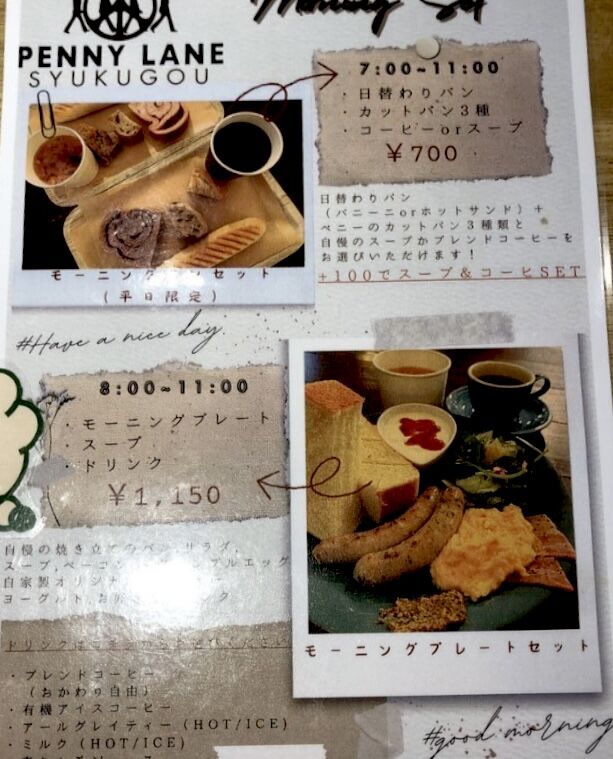 Morning Set
PENNY LANE
SYUKUGOU
7:00~11:00
・日替わりパン
・カットパン3種
・コーヒーorスープ
￥700
モーニング セット
(平日限定)
日替わりパン
(パニーニorホットサンド)+
ペニーのカットパン3種類と
自慢のスープかブレンドコーヒーを
お選びいただけます!
+100でスープ&コーヒSET
#Have a nice day.
8:00~11:00
・モーニングプレート
・スープ
・ドリンク
￥1,150
自慢の焼き立てのパン,サラダ,
スープ,ベーコン, ブルエッグ
自家製オリジナ
ヨーグルト,お ンク
モーニングプレートセット
ドリンクは ください
・ブレンドコーヒー
(おかわり自由)
・有機アイスコーヒー
・アールグレイティー(HOT/ICE)
・ミルク(HOT/ICE)
#good morning